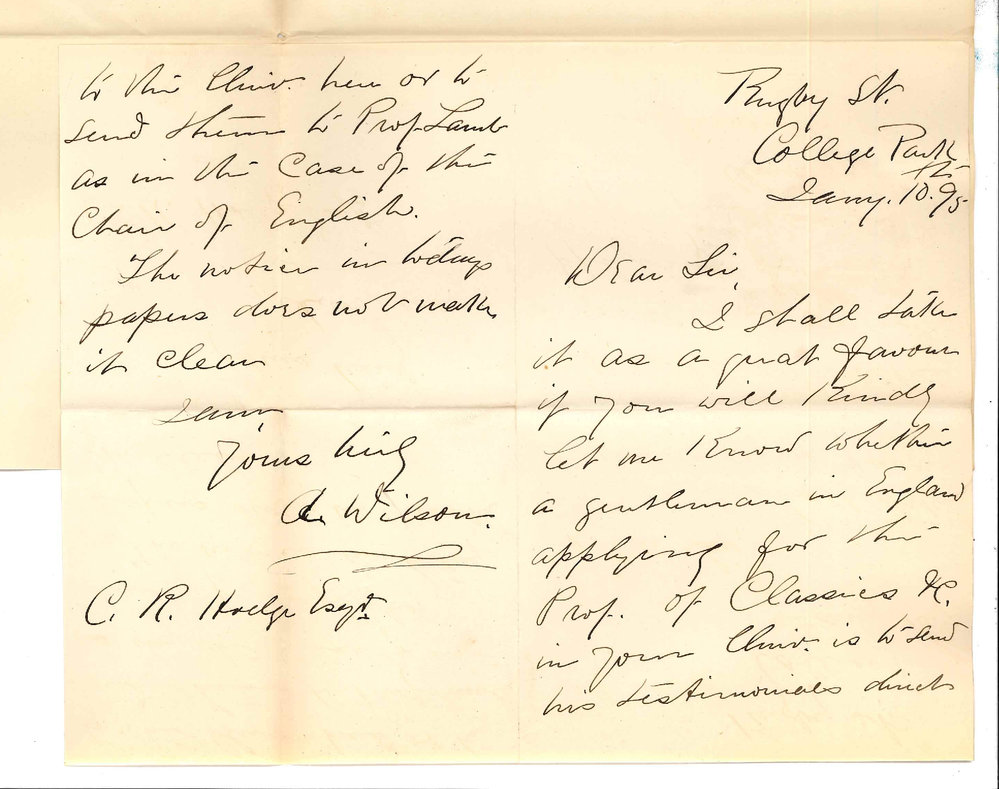 Rugby St.
College Park
Jany. 10th. 95
Dear Sir,
I shall take
it as a great favour
if you will kindly
let me know whether
a gentleman in England
applying for the
Prof. of Classics &c.
in your Univ. is to send
his testimonials direct
to the Univ. here or to
send them to Prof. Lamb
as in the case of the
Chair of English.
The notice in todays
papers does not make
it clear
I am,
Yours truly
A. Wilson.
C. R. Hodge Esqr.